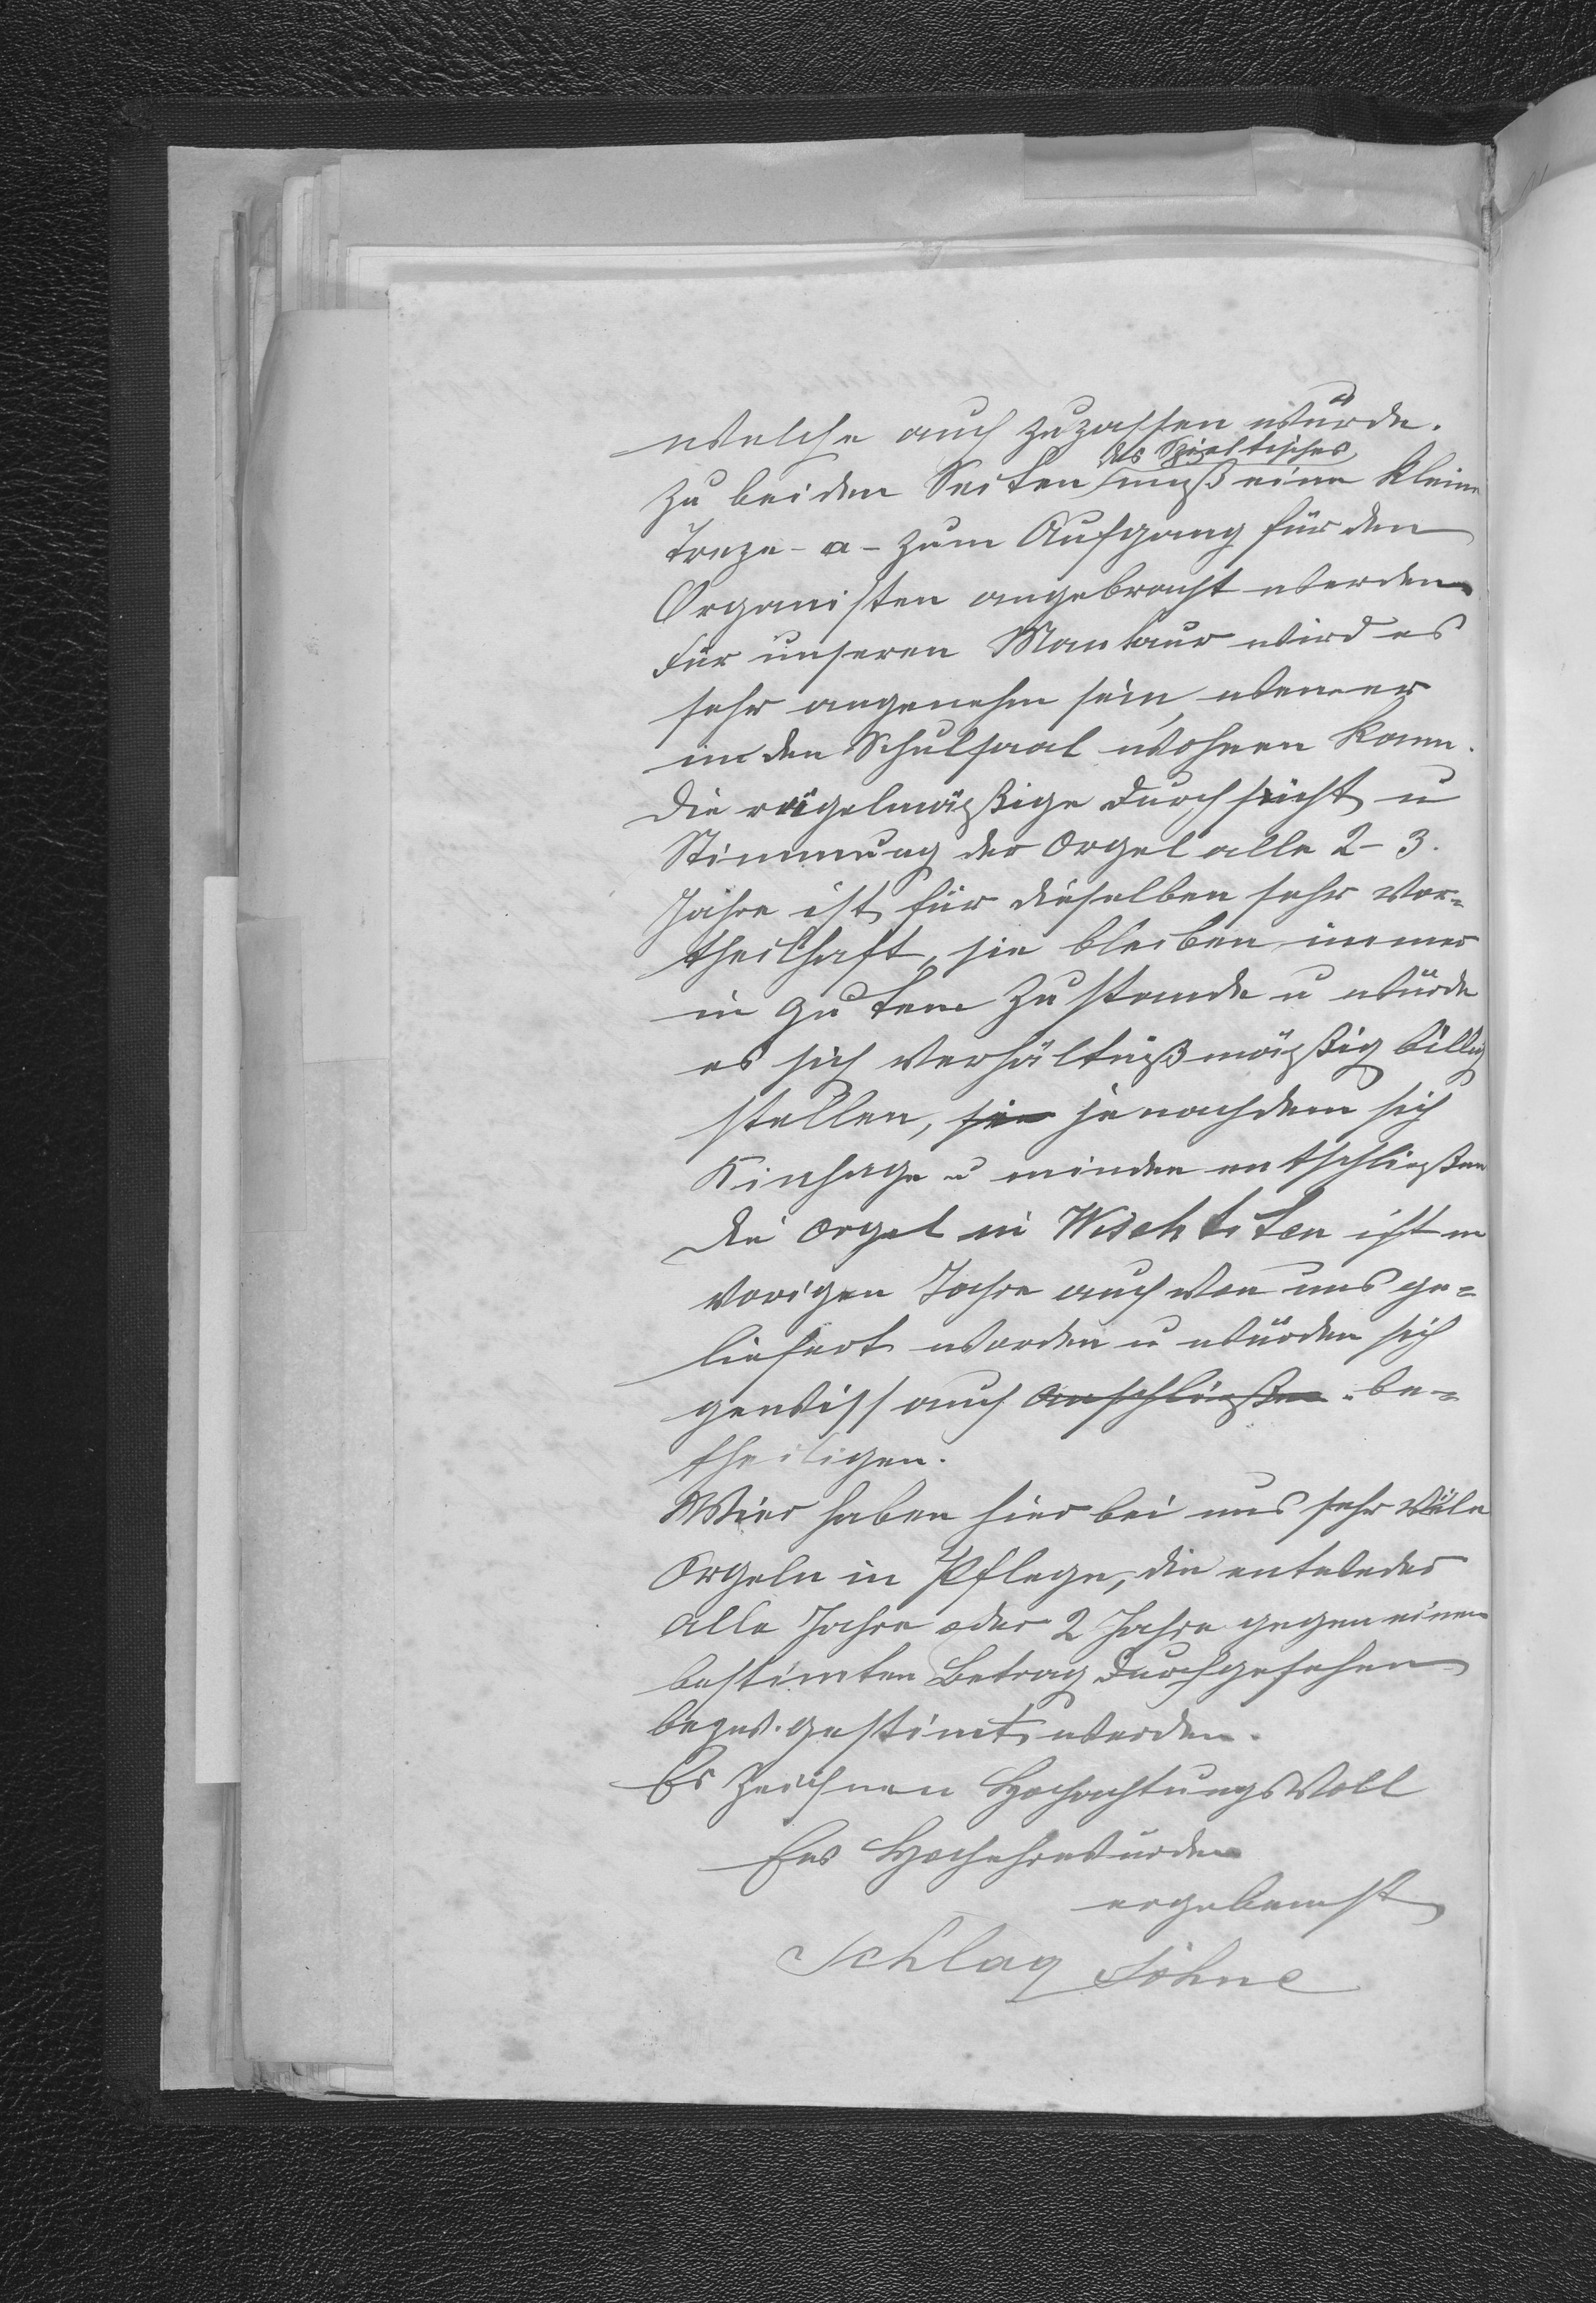 welche auch zupassen würde.
des Spieltisches
Zu beiden Seiten muß eine kleine
Treppe - a - zum Aufgang für den
Organisten angebracht werden
Für unseren Monteur wird es
sehr angenehm sein, wenn er
in den Schulsaal wohnen kann.
Die regelmäßige Durchsicht u
Stimmung der Orgel alle 2-3.
Jahre ist für dieselben sehr vor=
theilhaft, sie bleiben immer
in gutem Zustande u würde
es sich verhältnißmäßig billig
stellen, sie jenachdem sich
u minden entschließen
Die Orgel in Wischtiten ist im
vorigen Jahre auch von uns ge=
liefert worden u würden sich
gewiss auch anschließen be=
theiligen.
Wier haben hier bei uns sehr viele
Orgeln in Pflege, die entweder
alle Jahre oder 2 Jahre gegen einen
bestimten Betrag durchgesehen
bezw. gestimt werden.
Es zeichnen Hochachtungsvoll
Ew Hochehrwürden
ergebenst
Schlag Söhne